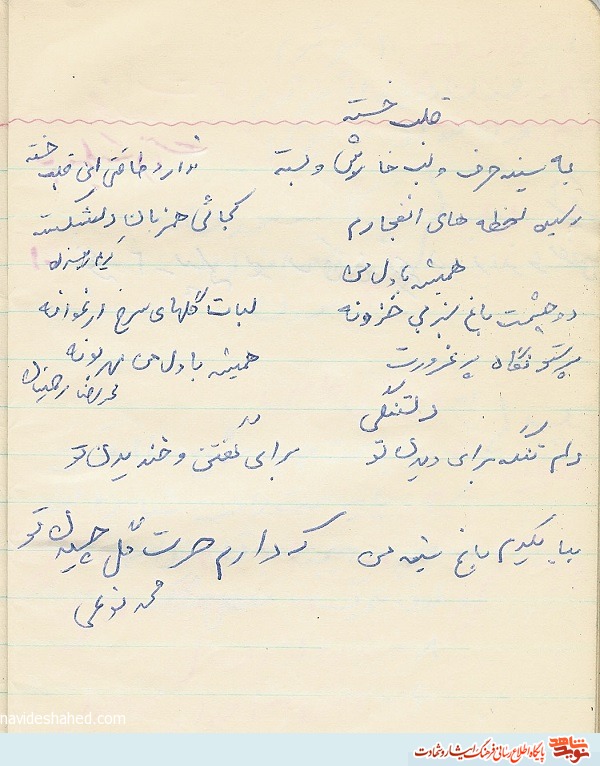 قلب خسته
به سینه حرف و لب خاموش و بسته ندارد طاقتی این قلب خسته
رسیده لحظه های انفجارم کجائی همزبان دلشکسته
همیشه با دل من
دو چشمت باغ سبز بی خزونه لبات گلهای سرخ ارغوانه
پرستو نگاه پر غرورت همیشه با دل من مهربونه
محمدرضا
دلتنگی
دلم تنگه برای دیدن تو برای گفتن و خندیدن تو
بیا یکدم باغ سینه من که دارم حسرت گل چیدن تو
محمد نوعی
navideshahed.com
نوید شاهد پایگاه اطلاع رسانی فرهنگ ایثار و شهادت